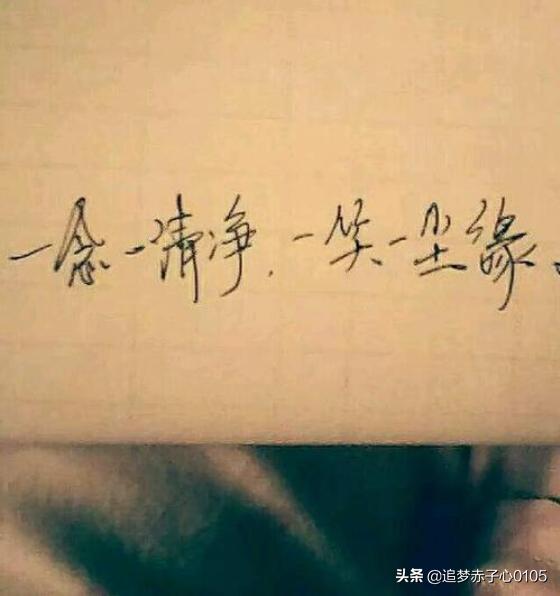 一念一清净,一笑一尘缘。
头条 @追梦赤子心0105